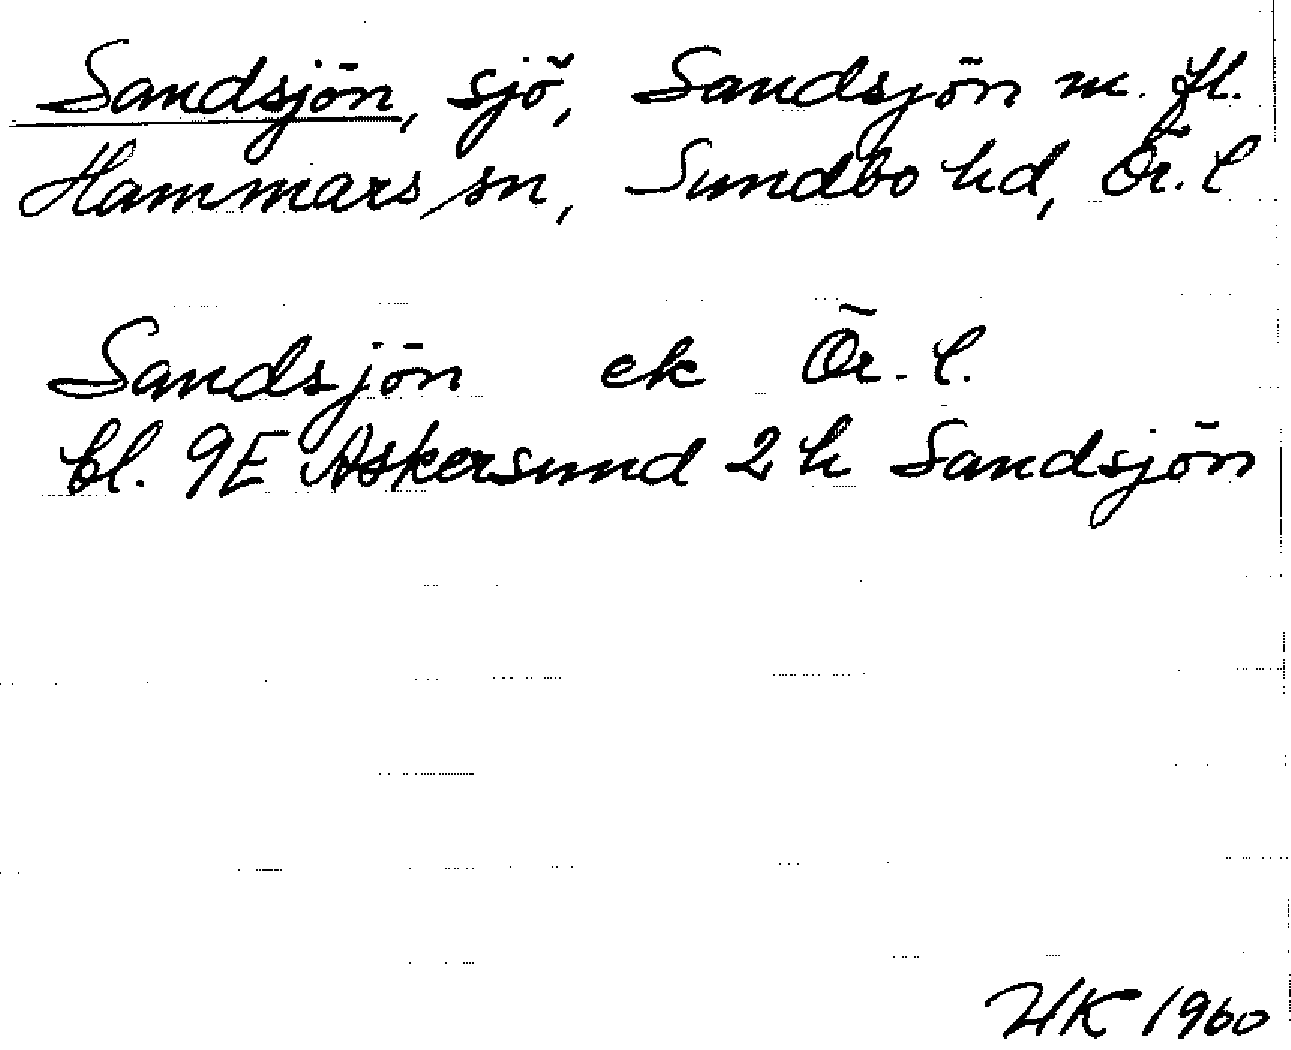 Sandsjön, sjö, Sandsjön m. fl.
Hammars sn, Sundbo hd, Ör. l
Sandsjön ek Ör. l.
bl. 9E Askersund 2 h Sandsjön
HK 1960